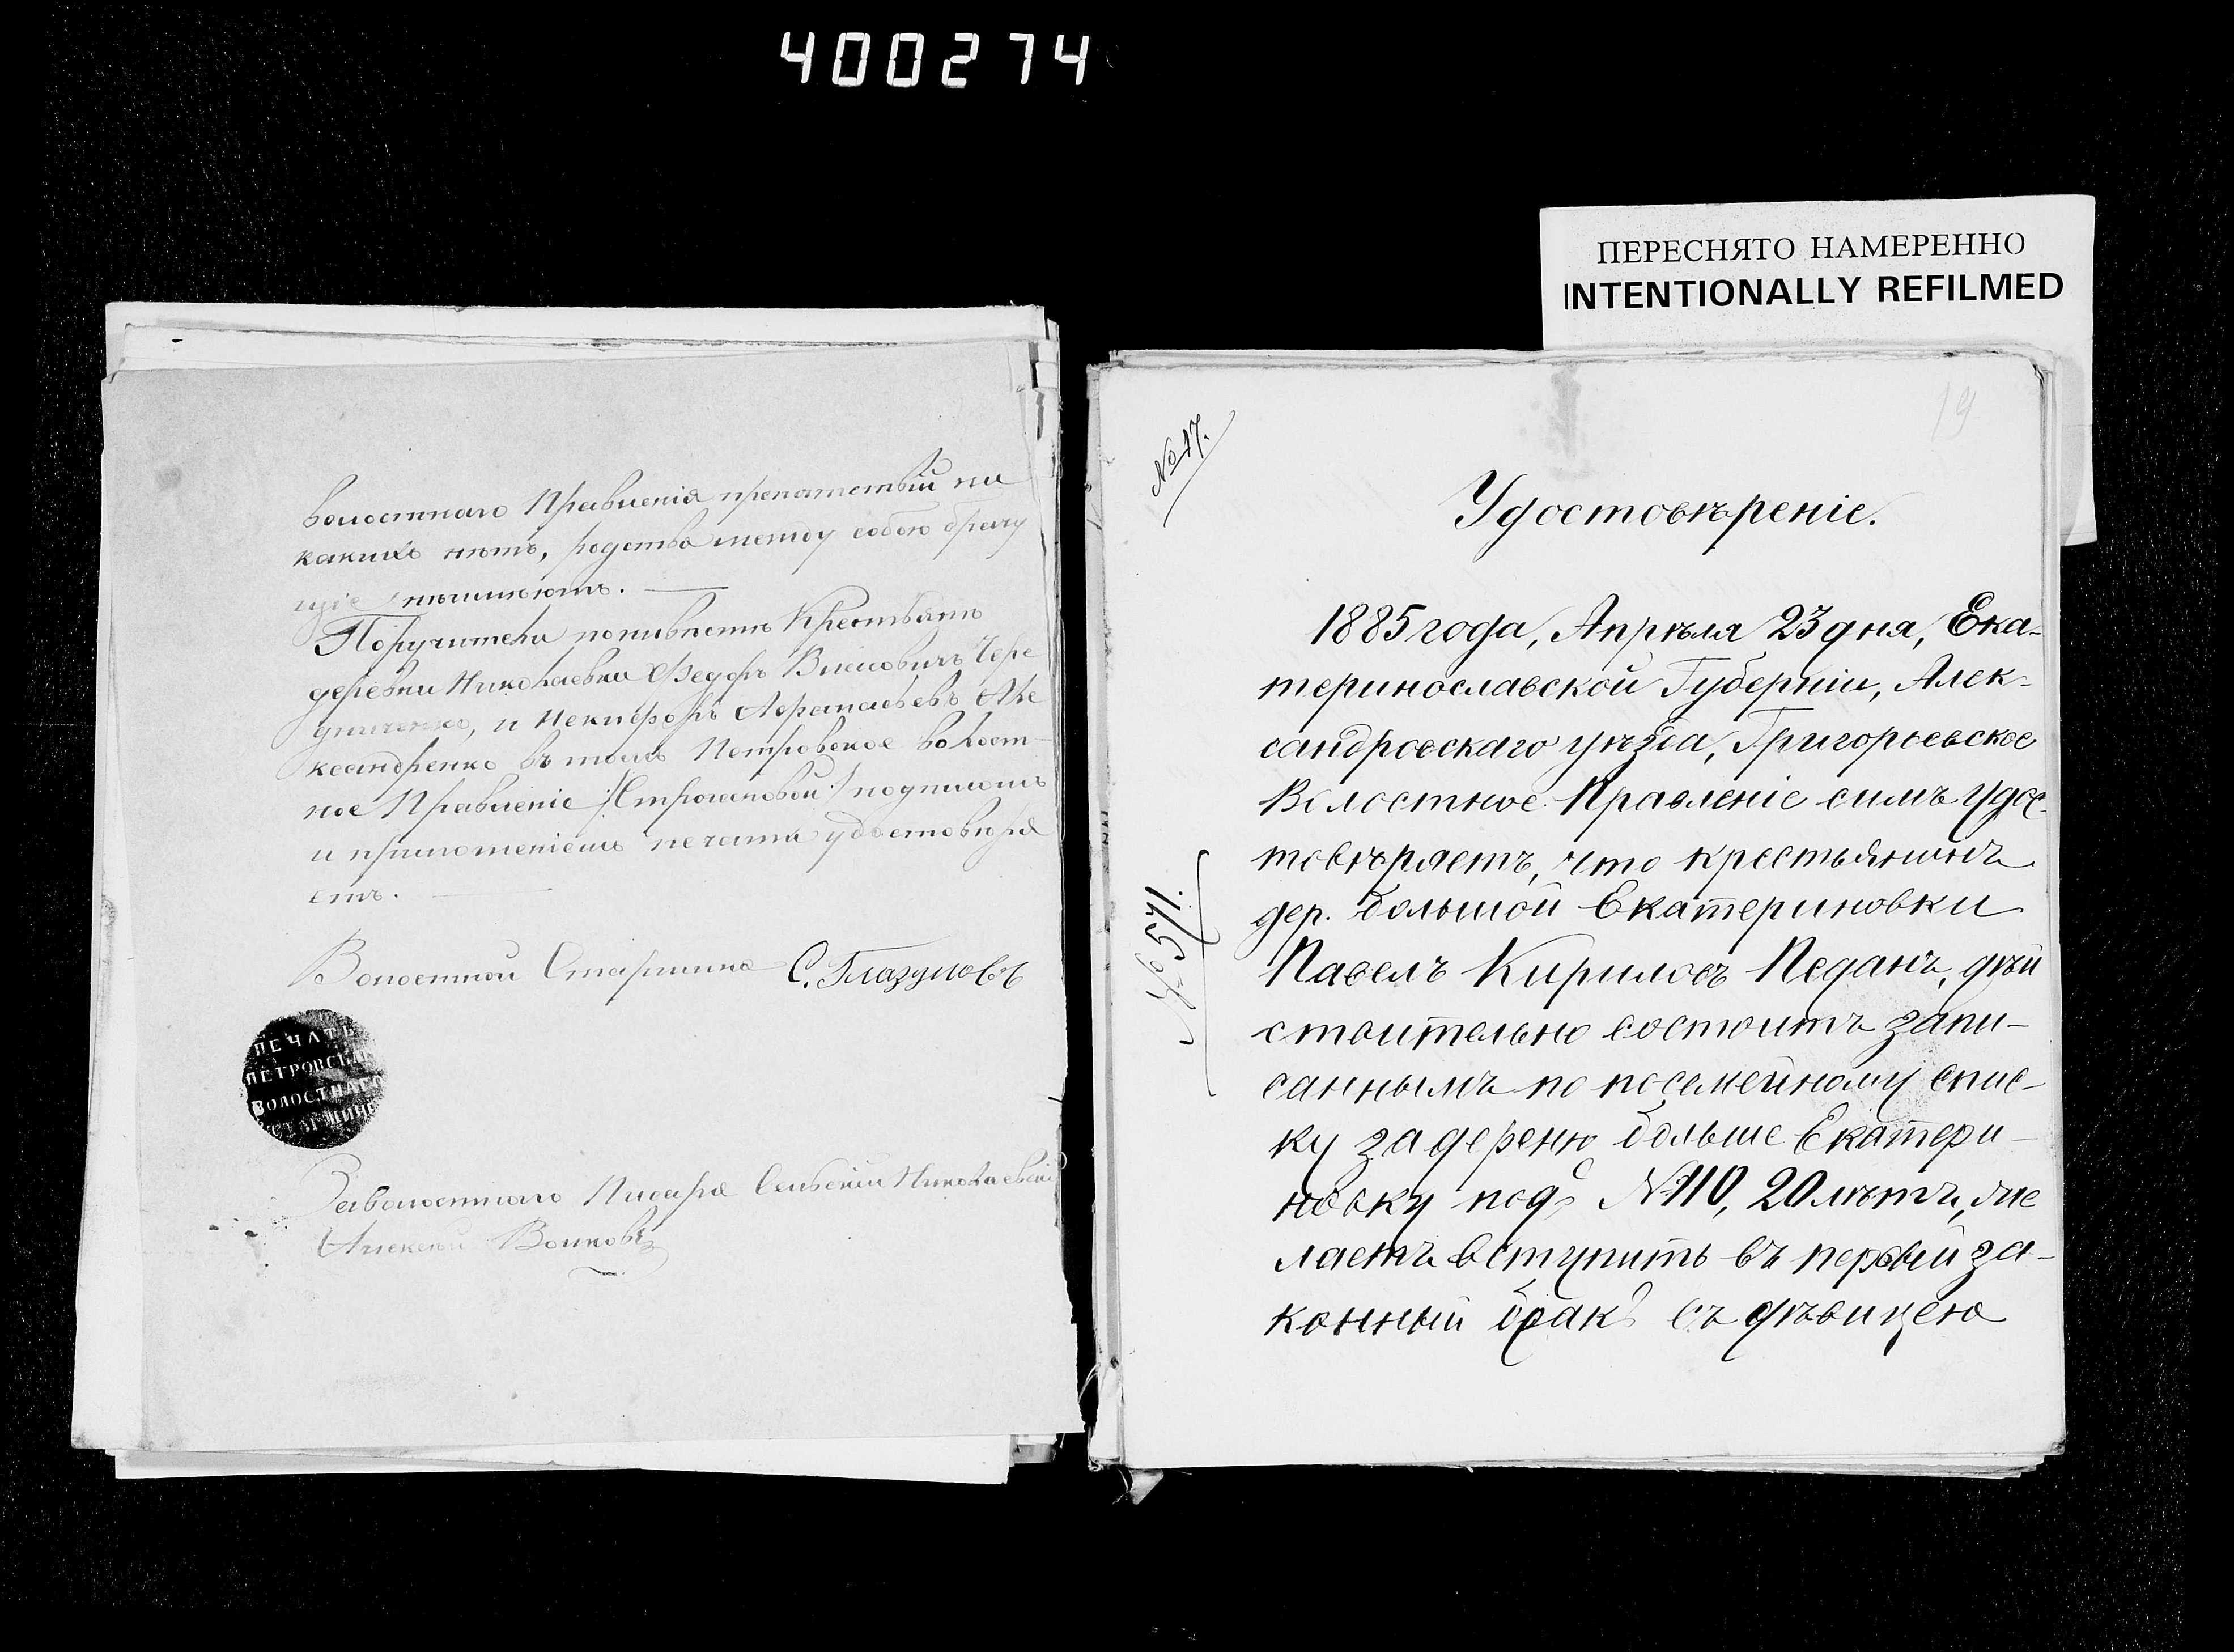 400274
ПЕРЕСНЯТО НАМЕРЕННО
INTENTIONALLY REFILMED
волостнаго Правленія препятствій ни
какихъ нѣтъ, родства между собою брачу
щіе неимѣютъ.
Поручители Крестьяне
деревни Николаевки Федоръ Чере
и Никифоръ Афанасьевъ Але
ксандренко въ томъ Петровское волост
ное Правленіе подписомъ
и приложеніемъ печати удостовѣря
етъ.
Волостной Старшина С. Глазуновъ
ПЕЧАТЬ
ПЕТРОВСКАГО
ВОЛОСТНАГО
СТАРШИНЫ
За волостнаго Писаря Сельскій Николаевскій
Алексѣй Волковъ
19
№ 17.
Удостовѣреніе.
№ 571.
1885 года, Апрѣля 23 дня, Ека-
теринославской Губерніи, Алек-
сандровскаго уѣзда, Григорьевское
Волостное Правленіе симъ удос-
товѣряетъ, что крестьянинъ
дер. Большой Екатериновки
Павелъ Кириловъ Педанъ, дѣй
ствительно состоитъ запи-
саннымъ по посемейному спис-
ку за деревню больше Екатери-
новку подъ № 110, 20 лѣтъ, же
лаетъ вступить въ первый за-
конный бракъ съ дѣвицею